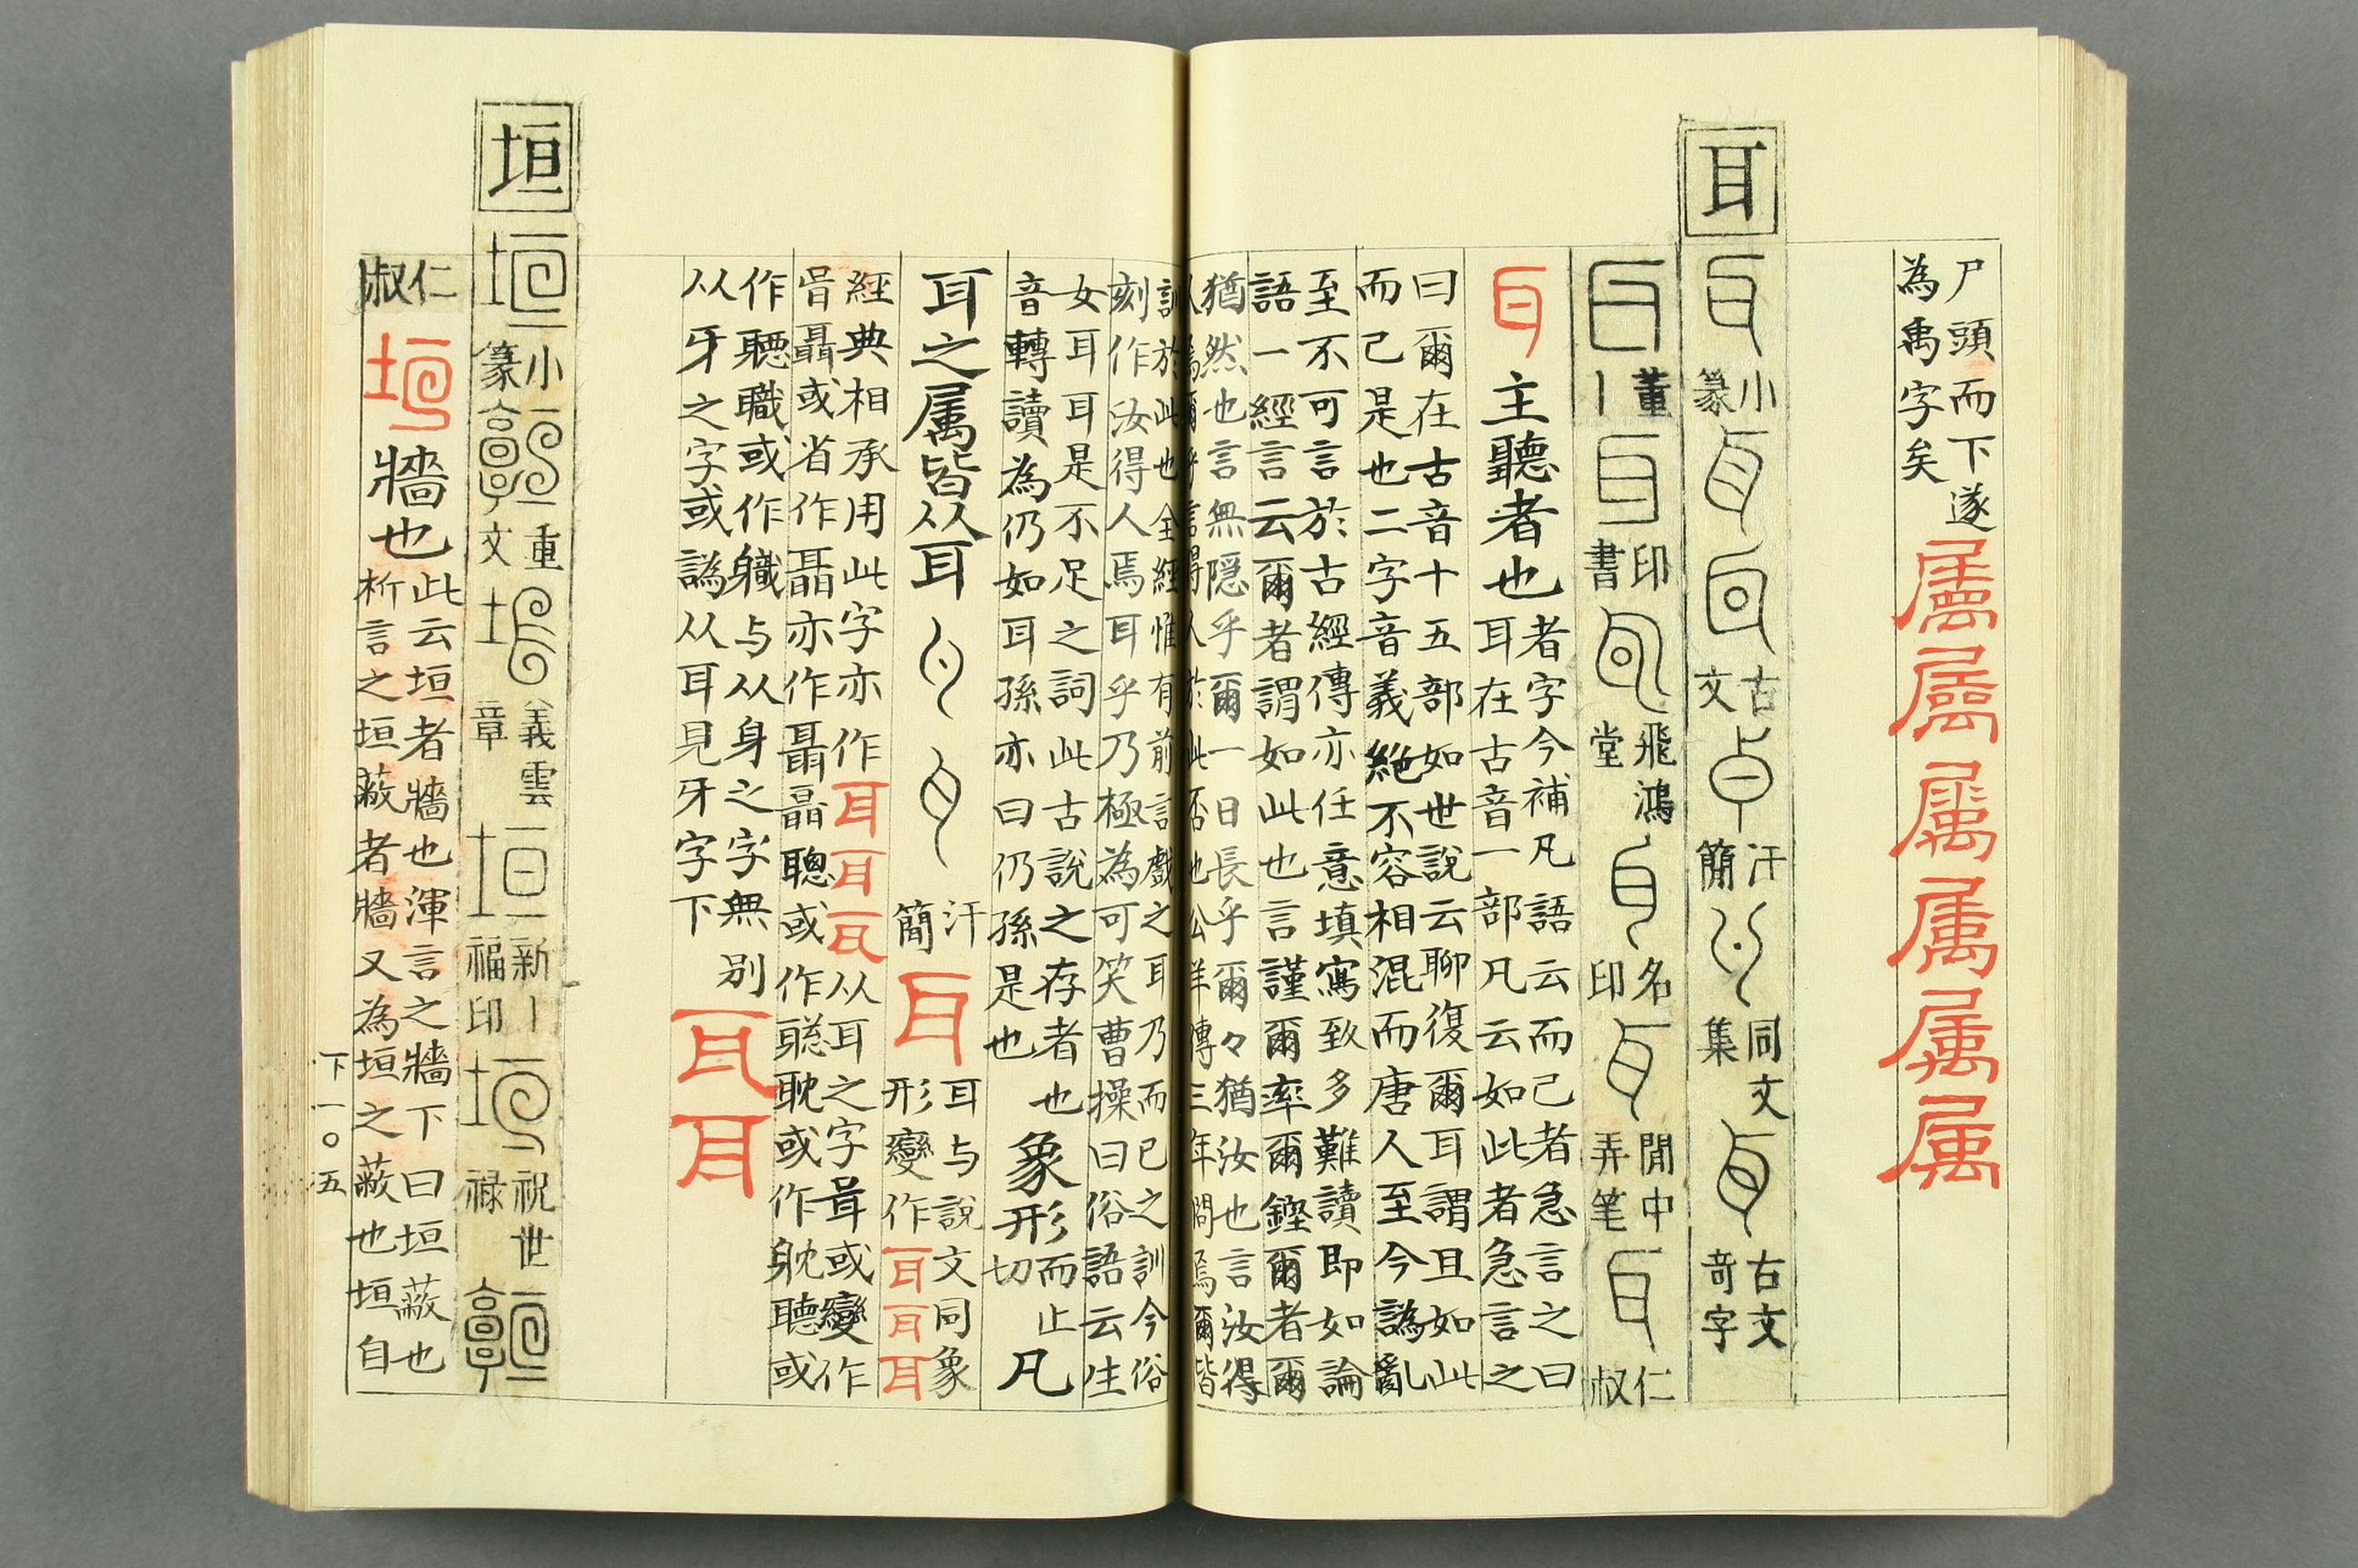 尸頭而下遂
為禹字矣
属属属属属属
耳
小篆
古文
汗簡
同文集
古文奇字
董丨
印書
飛鴻堂
名印
閒中弄笔
仁叔
耳主聽者也
者字今補凡語云而己者急言之曰
耳在古音一部凡云如此者急言之
曰爾在古音十五部如世說云聊復爾耳謂且如此
而己是也二字音義絶不容相混而唐人至今譌亂
至不可言於古經傳亦任意填寫致多難讀即如論
語一經言云爾者謂如此也言謹爾率爾鏗爾者爾
猶然也言無隱乎爾一日長乎爾々猶汝也言汝得
人焉爾乎言得人於此否也公羊傳三年問焉爾皆
訓於此也全經惟有前言戲之耳乃而已之訓今俗
刻作汝得人焉耳乎乃極為可笑曹操曰俗語云生
女耳耳是不足之詞此古說之存者也
音轉讀為仍如耳孫亦曰仍孫是也
象形
而止切
凡
耳之属皆从耳
汗簡
耳
耳与說文同象
形變作耳耳耳
經典相承用此字亦作耳耳耳从耳之字咠或變作
咠聶或省作聶亦作聶聶聰或作聡耽或作躭聽或
作聴職或作軄与从身之字無別
从牙之字或譌从耳見牙字下
耳耳
垣
小篆
重文
義雲章
新丨福印
祝世禄
仁叔
垣牆也
此云垣者牆也渾言之牆下曰垣蔽也
析言之垣蔽者牆又為垣之蔽也垣自
下一〇五